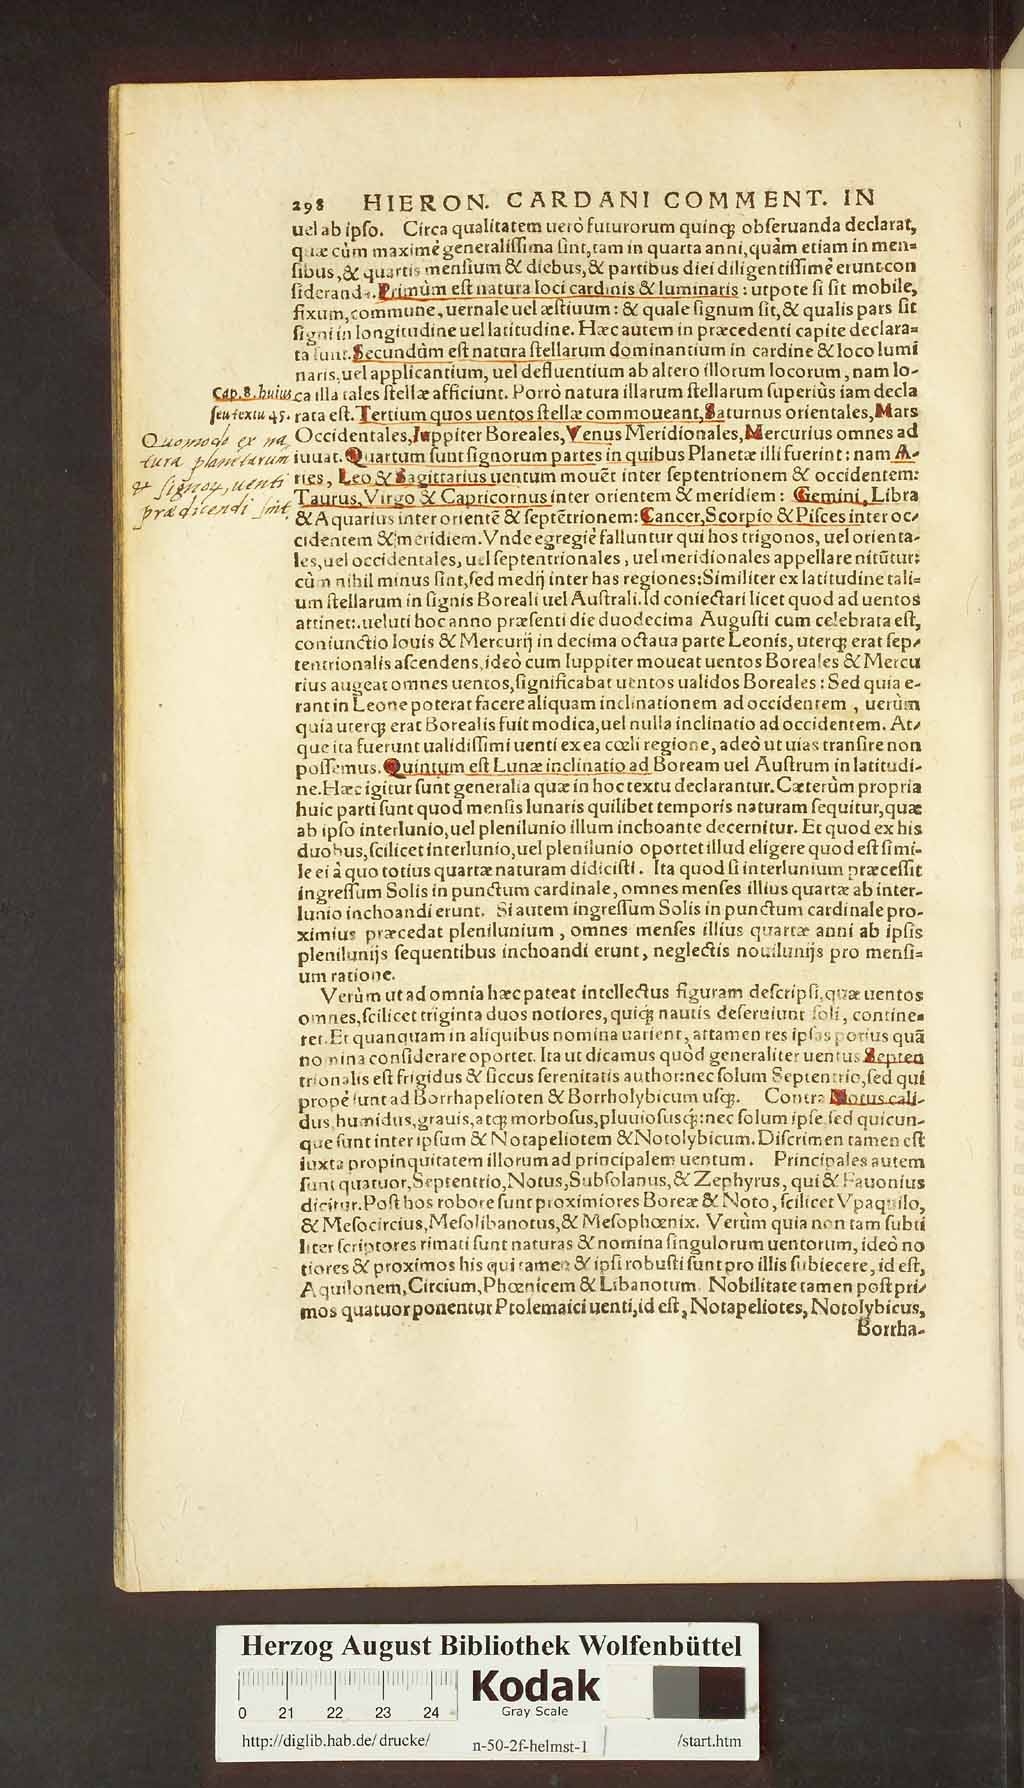 298 HIERON. CARDANI COMMENT. IN
uel ab ipso. Circa qualitatem uerò futurorum quinq; obseruanda declarat,
quæ cùm maximè generalissima sint, tam in quarta anni, quàm etiam in men=
sibus, & quartis mensium & diebus, & partibus diei diligentissimè erunt con
sideranda. Primùm est natura loci cardinis & luminaris: utpote si sit mobile,
fixum, commune, uernale uel æstiuum: & quale signum sit, & qualis pars sit
signi in longitudine uel latitudine. Hæc autem in præcedenti capite declara=
ta sunt. Secundùm est natura stellarum dominantium in cardine & loco lumi
naris, uel applicantium, uel defluentium ab altero illorum locorum, nam lo-
Cap. 8. huius
seu textu 45.
ca illa tales stellæ afficiunt. Porrò natura illarum stellarum superiùs iam decla
rata est. Tertium quos uentos stellæ commoueant, Saturnus orientales, Mars
Quomodo ex na
tura planetarum
& signoꝝ, uenti
prædicendi sint.
Occidentales, Iuppiter Boreales, Venus Meridionales, Mercurius omnes ad
iuuat. Quartum sunt signorum partes in quibus Planetæ illi fuerint: nam A-
ries, Leo & Sagittarius uentum mouẽt inter septentrionem & occidentem:
Taurus, Virgo & Capricornus inter orientem & meridiem: Gemini, Libra
& Aquarius inter orientẽ & septẽtrionem: Cancer, Scorpio & Pisces inter oc-
cidentem & meridiem. Vnde egregiè falluntur qui hos trigonos, uel orienta-
les, uel occidentales, uel septentrionales, uel meridionales appellare nitũtur:
cùm nihil minus sint, sed medij inter has regiones: Similiter ex latitudine tali=
um stellarum in signis Boreali uel Australi. Id coniectari licet quod ad uentos
attinet: ueluti hoc anno præsenti die duodecima Augusti cum celebrata est,
coniunctio Iouis & Mercurij in decima octaua parte Leonis, uterq; erat sep-
tentrionalis ascendens, ideò cum Iuppiter moueat uentos Boreales & Mercu
rius augeat omnes uentos, significabat uentos ualidos Boreales: Sed quia e-
rant in Leone poterat facere aliquam inclinationem ad occidentem, uerùm
quia uterq; erat Borealis fuit modica, uel nulla inclinatio ad occidentem. At-
que ita fuerunt ualidissimi uenti ex ea cœli regione, adeò ut uias transire non
possemus. Quintum est Lunæ inclinatio ad Boream uel Austrum in latitudi-
ne. Hæc igitur sunt generalia quæ in hoc textu declarantur. Cæterùm propria
huic parti sunt quod mensis lunaris quilibet temporis naturam sequitur, quæ
ab ipso interlunio, uel plenilunio illum inchoante decernitur. Et quod ex his
duobus, scilicet interlunio, uel plenilunio oportet illud eligere quod est simi-
le ei à quo totius quartæ naturam didicisti. Ita quod si interlunium præcessit
ingressum Solis in punctum cardinale, omnes menses illius quartæ ab inter-
lunio inchoandi erunt. Si autem ingressum Solis in punctum cardinale pro-
ximius præcedat plenilunium, omnes menses illius quartæ anni ab ipsis
plenilunijs sequentibus inchoandi erunt, neglectis nouilunijs pro mensi=
um ratione.
Verùm ut ad omnia hæc pateat intellectus figuram descripsi, quæ uentos
omnes, scilicet triginta duos notiores, quiq; nautis deseruiunt soli, contine=
ret. Et quanquam in aliquibus nomina uarient, attamen res ipsas potius quã
nomina considerare oportet. Ita ut dicamus quòd generaliter uentus Septen
trionalis est frigidus & siccus serenitatis author: nec solum Septentrio, sed qui
propè sunt ad Borrhapelioten & Borrholybicum usq;. Contra Notus cali-
dus, humidus, grauis, atq; morbosus, pluuiosusq;: nec solum ipse sed quicun-
que sunt inter ipsum & Notapeliotem & Notolybicum. Discrimen tamen est
iuxta propinquitatem illorum ad principalem uentum. Principales autem
sunt quatuor, Septentrio, Notus, Subsolanus, & Zephyrus, qui & Fauonius
dicitur. Post hos robore sunt proximiores Boreæ & Noto, scilicet Vpaquilo,
& Mesocircius, Mesolibanotus, & Mesophœnix. Verùm quia non tam subti
liter scriptores rimati sunt naturas & nomina singulorum uentorum, ideò no
tiores & proximos his qui tamen & ipsi robusti sunt pro illis subiecere, id est,
Aquilonem, Circium, Phœnicem & Libanotum. Nobilitate tamen post pri-
mos quatuor ponentur Ptolemaici uenti, id est, Notapeliotes, Notolybicus,
Borrha-
Herzog August Bibliothek Wolfenbüttel
0 21 22 23 24
Kodak
Gray Scale
http://diglib.hab.de/drucke/ n-50-2f-helmst-1 /start.htm